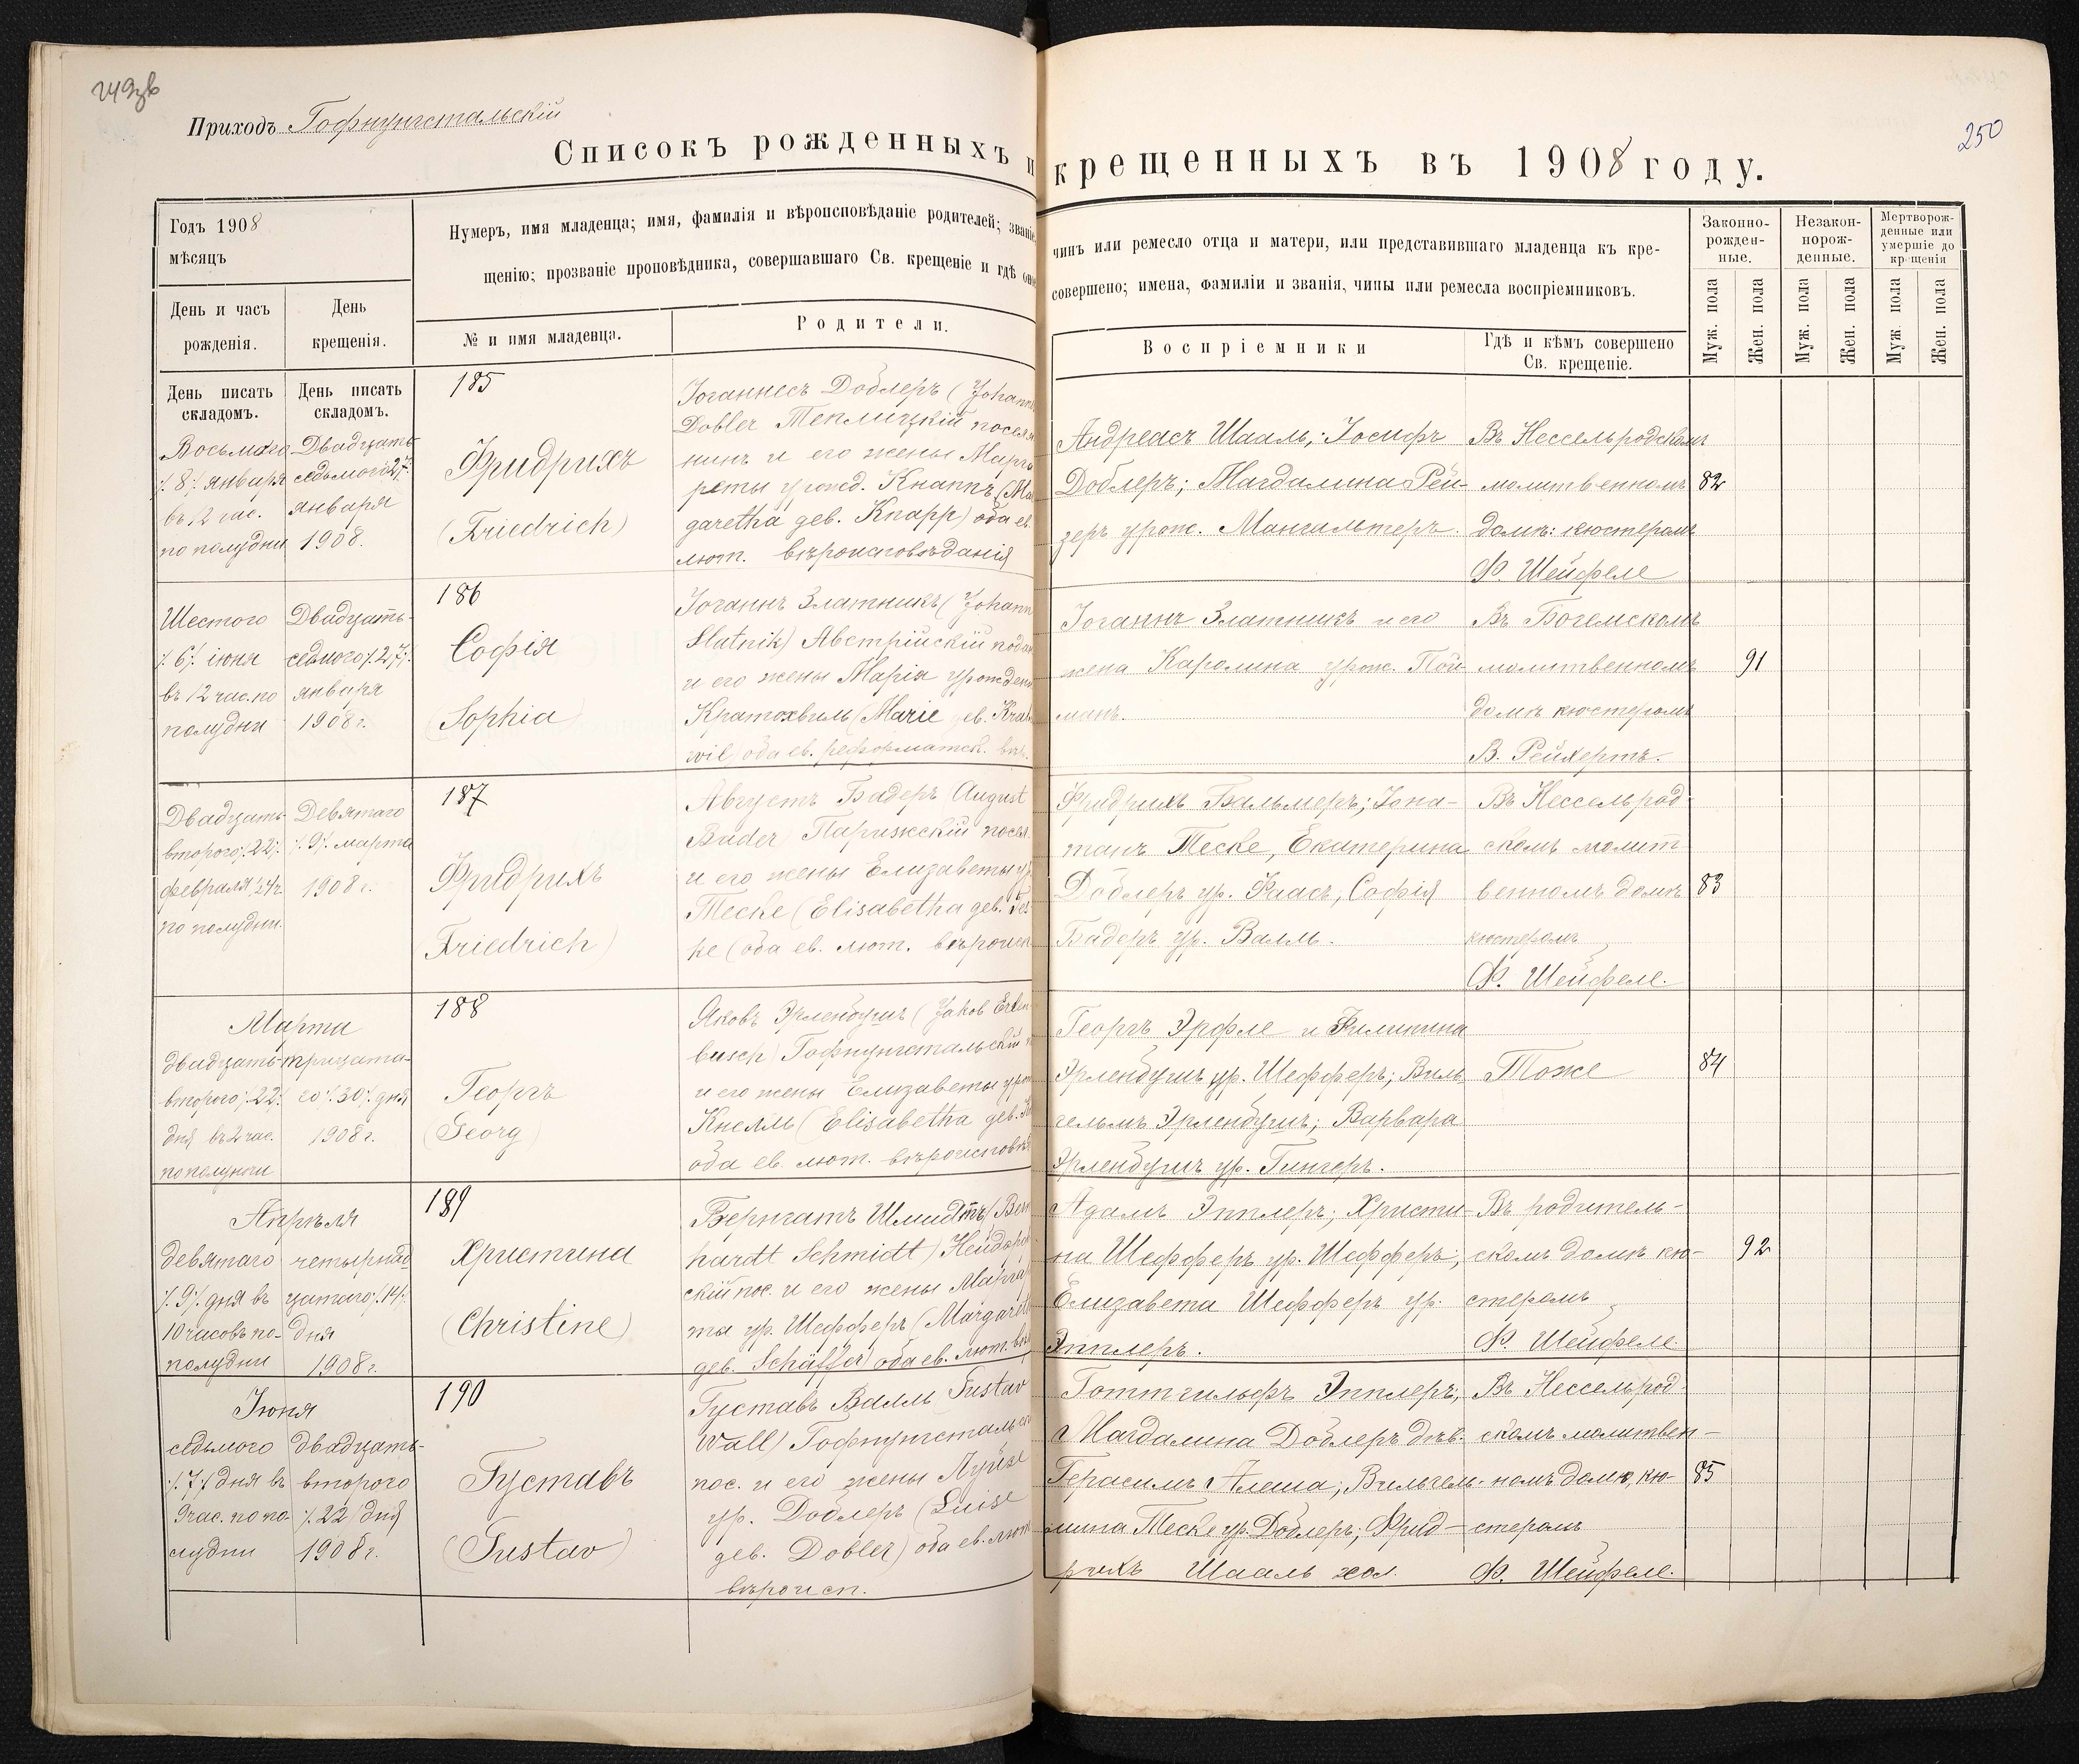 249зв
250
Приходъ Гофнунгстальскій
Списокъ рожденныхъ и крещенныхъ въ 1908 году.
Годъ 1908
мѣсяцъ
День и часъ
рожденія.
День
крещенія.
Нумеръ, имя младенца; имя, фамилія и вѣроисповѣданіе родителей; званіе,
щенію; прозваніе проповѣдника, совершавшаго Св. крещеніе и гдѣ оно
№ и имя младенца.
Родители.
чинъ или ремесло отца и матери, или представившаго младенца къ кре-
совершено; имена, фамиліи и званія, чины или ремесла воспріемниковъ.
Воспріемники
Гдѣ и кѣмъ совершено
Св. крещеніе.
Законно-
рожден-
ные.
Незакон-
норож-
денные.
Мертворож-
денные или
умершіе до
крещенія
Муж. пола
Жен. пола
Муж. пола
Жен. пола
Муж. пола
Жен. пола
День писать
складомъ.
День писать
складомъ.
Восьмого
/:8:/ января
въ 12 час.
по полудни
Двадцать
седьмого 27.
января
1908.
185
Фридрихъ
(Friedrich)
Іоганнесъ Доблеръ (Johann
Dobler Теплицкій поселя
нинъ и его жены Марга
реты урожд. Кнаппъ (Mar
garetha geb. Knapp) оба ев.
лют. вѣроисповѣданія
Андреасъ Шааль; Іосифъ
Доблеръ; Магдалина Рей-
зеръ урож. Мангальтеръ.
Въ Нессельродскомъ
молитвенномъ
домѣ: кюстеромъ
Ф. Шейфеле
82
Шестого
/:6:/ іюня
въ 12 час. по
полудни
Двадцать-
седьмого /:27:/
января
1908 г.
186
Софія
(Sophia)
Іоганнъ Златникъ (Johann
Slatnik) Австрійскій подан
и его жены Марія урожден
Кратохвилъ (Marie geb. Krato
wil) оба ев. реформатск. вѣр.
Іоганнъ Златникъ и его
жена Каролина урож. Пой-
манъ.
Въ Богемскомъ
молитвенномъ
домѣ кюстеромъ
В. Рейхертъ.
91
Двадцать
второго /:22:/
февраля 24 ч.
по полудни.
Девятаго
/:9:/ марта
1908 г.
187
Фридрихъ
(Friedrich)
Августъ Бадеръ (August
Bader) Парижскій посел.
и его жены Елизаветы ур.
Теске (Elisabetha geb. Tes
ke (оба ев. лют. вѣроисп
Фридрихъ Бальмеръ; Іона-
танъ Теске, Екатерина
Доблеръ ур. Фаасъ, Софія
Бадеръ ур. Валль.
Въ Нессельрод-
скомъ молит
венномъ домѣ
кюстеромъ
Ф. Шейфеле.
83
Марта
двадцать
второго /:22:/
дня въ 2 час.
по полуночи
тридцата-
го /:30:/ дня
1908 г.
188
Георгъ
(Georg)
Яковъ Эрленбушъ (Jakob Erlen
busch) Гофнунгстальскій п
и его жены Елизаветы урож
Кнелль (Elisabetha geb. Kn
оба ев. лют. вѣроисповѣ
Георгъ Эрфле и Филипина
Эрленбушъ ур. Шефферъ; Виль
гельмъ Эрленбушъ; Варвара
Эрленбушъ ур. Гингеръ.
Тоже
84
Апрѣля
девятаго
/:9:/ дня въ
10 часовъ по-
полудни
четырнад
цатаго /:14:/
дня
1908 г.
189
Христина
(Christine)
Бернгатъ Шмидтъ (Bern
hardt Schmidt) Нейдорф
скій пос. и его жены Марга
ты ур. Шефферъ (Margarete
geb. Schäffer) оба ев. лют. вѣр
Адамъ Эпплеръ; Христи-
на Шефферъ ур. Шефферъ;
Елизавета Шефферъ ур.
Эпплеръ.
Въ родитель-
скомъ домѣ кю-
стеромъ
Ф. Шейфеле.
92
Іюня
седьмого
/:7:/ дня въ
9 час. по по-
лудни
двадцать-
второго
/:22/ дня
1908 г.
190
Густавъ
(Gustav)
Густавъ Валль Gustav
Wall) Гофнунгстальск
пос. и его жены Луизе
ур. Доблеръ (Luise
geb. Dobler) оба ев. лют
вѣроисп.
Готтгильфъ Эпплеръ;
Магдалина Доблеръ дѣв.
Герасимъ Алеша; Вильгель-
мина Теске ур. Доблеръ; Фрид-
рихъ Шааль хол.
Въ Нессельрод-
скомъ молитвен-
номъ домѣ, кю-
стеромъ
Ф. Шейфеле.
85